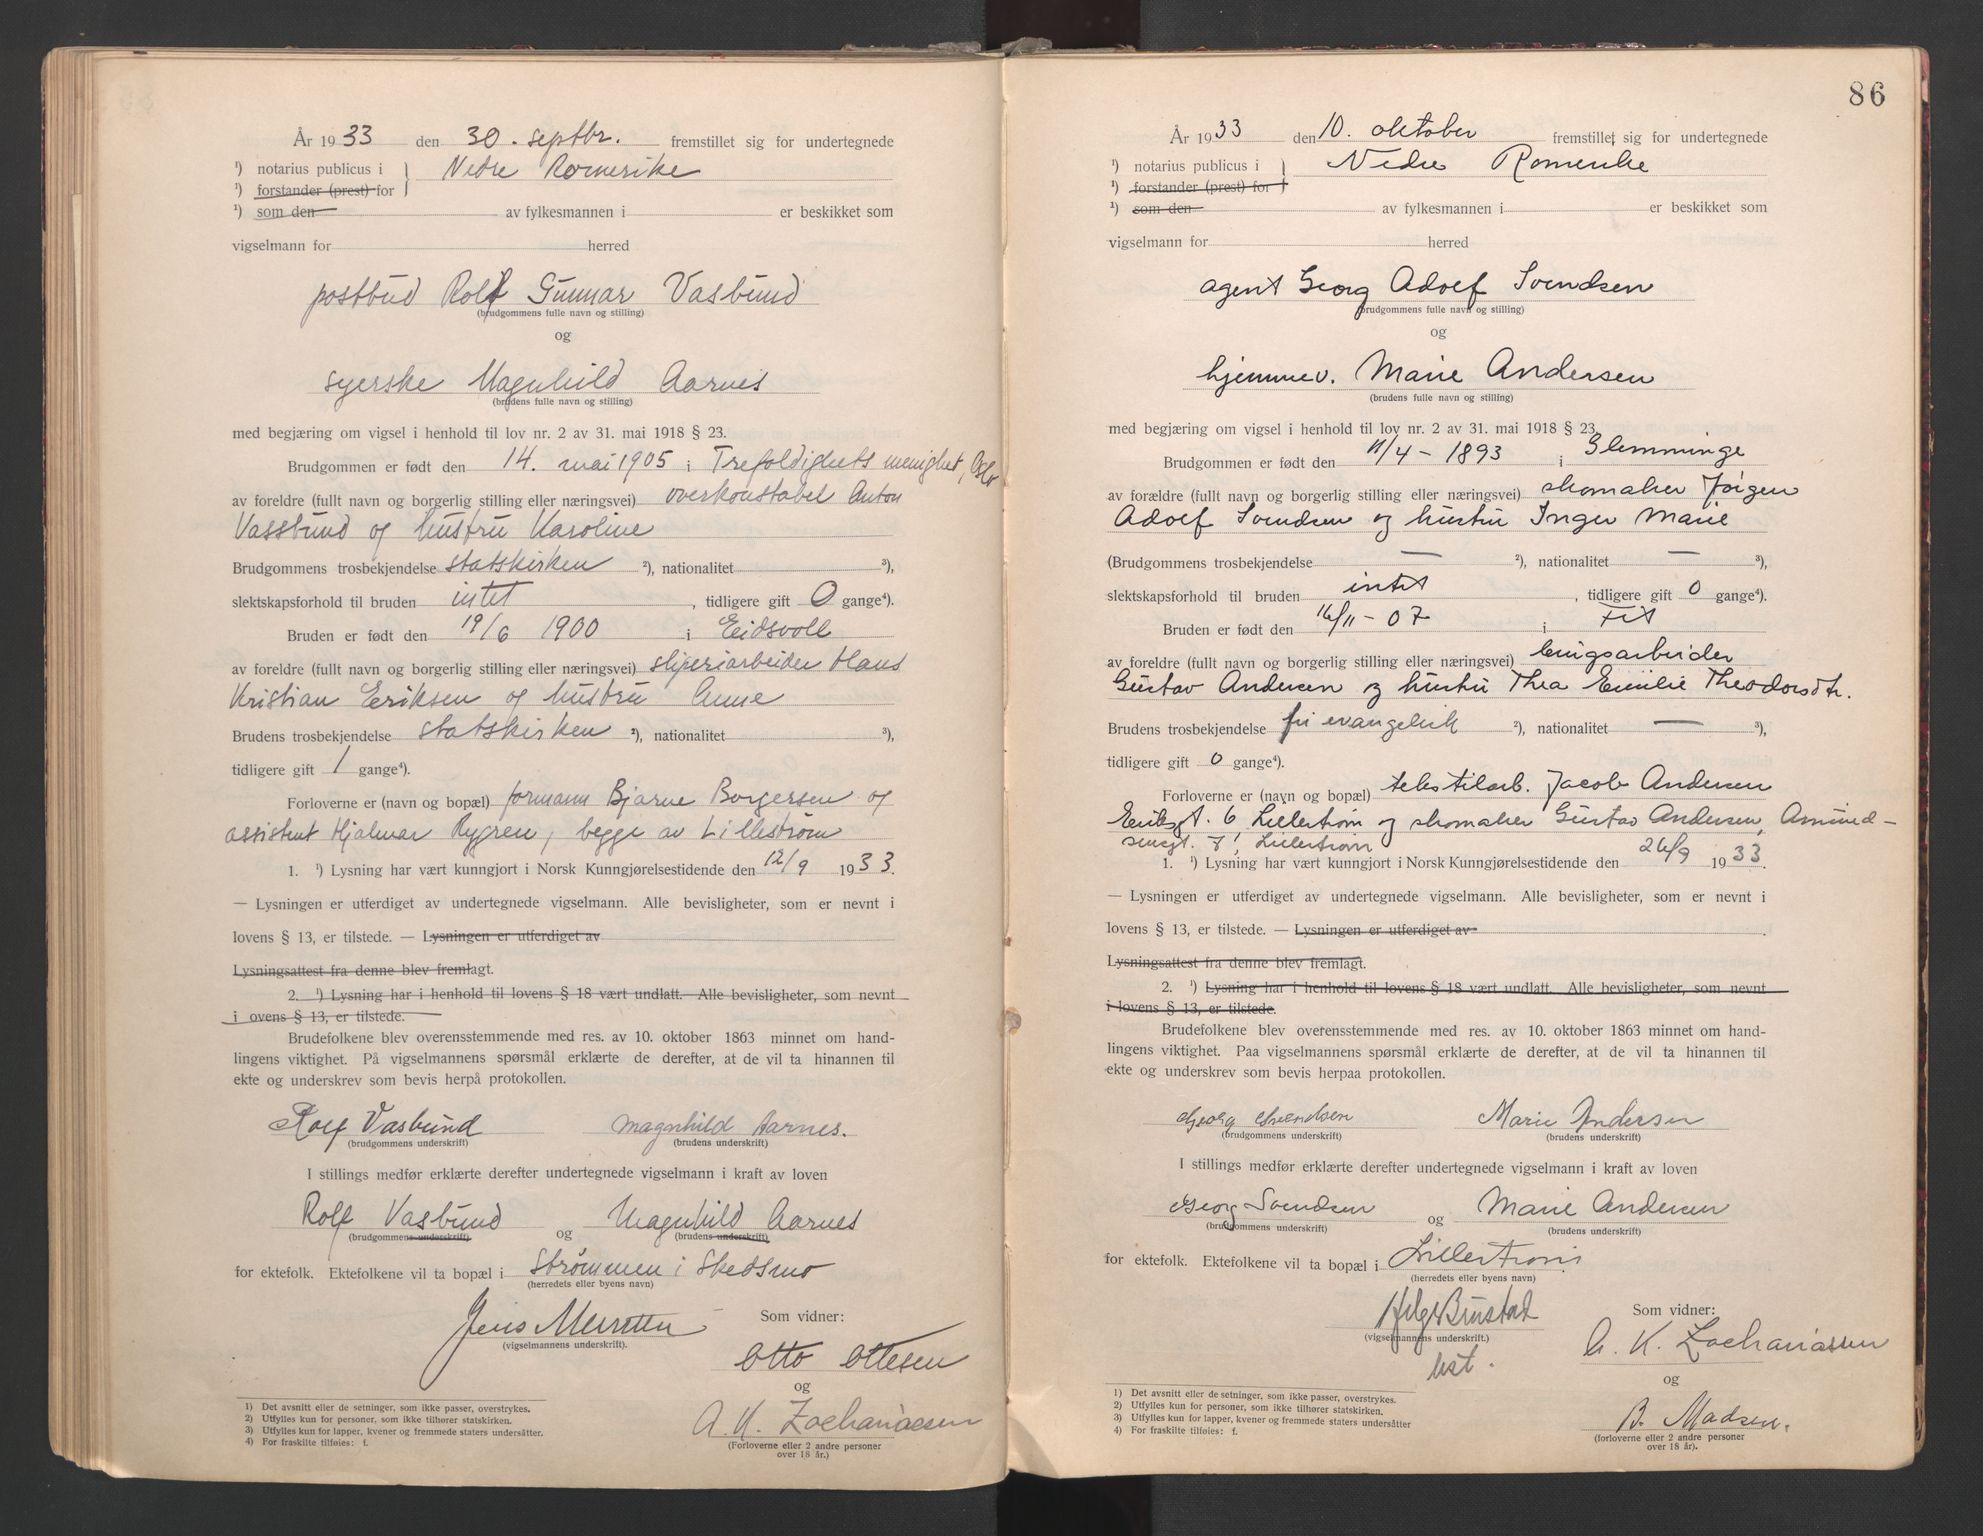 År 1933 den 30. septbr. fremstillet sig for undertegnede
¹) notarius publicus i } Nedre Romerike
¹) forstander (prest) for
¹) som den av fylkesmannen i er beskikket som
vigselmann for herred
postbud Rolf Gunnar Vasbund
(brudgommens fulle navn og stilling)
og
syerske Magnhild Aarnes
(brudens fulle navn og stilling)
med begjæring om vigsel i henhold til lov nr. 2 av 31. mai 1918 § 23.
Brudgommen er født den 14. mai 1905 i Trefoldighets menighet, Oslo
av foreldre (fullt navn og borgerlig stilling eller næringsvei) overkonstabel Anton
Vassbund og hustru Karoline
Brudgommens trosbekjendelse statskirken ²), nationalitet ³),
slektskapsforhold til bruden intet, tidligere gift 0 gange⁴).
Bruden er født den 19/6 1900 i Eidsvoll
av foreldre (fullt navn og borgerlig stilling eller næringsvei) sliperiarbeider Hans
Kristian Eriksen og hustru Anne
Brudens trosbekjendelse statskirken ²), nationalitet ³),
tidligere gift 1 gange⁴).
Forloverne er (navn og bopæl) formann Bjarne Borgersen og
assistent Hjalmar Rygren, begge av Lillestrøm
1. ¹) Lysning har vært kunngjort i Norsk Kunngjørelsestidende den 12/9 1933.
— Lysningen er utferdiget av undertegnede vigselmann. Alle bevisligheter, som er nevnt i
lovens § 13, er tilstede. — Lysningen er utferdiget av
Lysningsattest fra denne blev fremlagt.
2. ¹) Lysning har i henhold til lovens § 18 vært undlatt. Alle bevisligheter, som nevnt
i ovens § 13, er tilstede.
Brudefolkene blev overensstemmende med res. av 10. oktober 1863 minnet om hand-
lingens viktighet. På vigselmannens spørsmål erklærte de derefter, at de vil ta hinannen til
ekte og underskrev som bevis herpå protokollen.
Rolf Vasbund Magnhild Aarnes.
(brudgommens underskrift) (brudens underskrift)
I stillings medfør erklærte derefter undertegnede vigselmann i kraft av loven
Rolf Vasbund og Magnhild Aarnes
(brudgommens underskrift) (brudens underskrift)
for ektefolk. Ektefolkene vil ta bopæl i Strømmen i Skedsmo
(herredets eller byens navn)
Jens Som vidner:
(vigselmannens underskrift).
Otto Ottesen
og
A. K. Zachariassen
(Forloverne eller 2 andre personer
over 18 år.)
1) Det avsnitt eller de setninger, som ikke passer, overstrykes.
2) Utfylles kun for personer, som ikke tilhører statskirken.
3) Utfylles kun for lapper, kvener og fremmede staters undersåtter.
4) For fraskilte tilføies: f.
86
År 1933 den 10. oktober fremstillet sig for undertegnede
¹) notarius publicus i } Nedre Romerike
¹) forstander (prest) for
¹) som den av fylkesmannen i er beskikket som
vigselmann for herred
agent Georg Adolf Svendsen
(brudgommens fulle navn og stilling)
og
hjemmev. Marie Andersen
(brudens fulle navn og stilling)
med begjæring om vigsel i henhold til lov nr. 2 av 31. mai 1918 § 23.
Brudgommen er født den 11/4 - 1893 i Glemminge
av forældre (fullt navn og borgerlig stilling eller næringsvei) skomaker Jørgen
Adolf Svendsen og hustru Inger Marie
(Brudgommens trosbekjendelse — ²), nationalitet — ³),
slektskapsforhold til bruden intet, tidligere gift 0 gange⁴).
Bruden er født den 16/11 - 07 i Fet
av foreldre (fullt navn og borgerlig stilling eller næringsvei) brugsarbeider
Gustav Andersen og hustru Thea Emilie Theodorsdtr.
Brudens trosbekjendelse fri evangelisk ²), nationalitet — ³),
tidligere gift 0 gange⁴).
Forloverne er (navn og bopæl) tekstilarb. Jacob Andersen
Eriksgt. 6 Lillestrøm og skomaker Gustav Andersen, Amund-
sensgt. 7, Lillestrøm
1. ¹) Lysning har vært kunngjort i Norsk Kunngjørelsestidende den 26/9 1933.
— Lysningen er utferdiget av undertegnede vigselmann. Alle bevisligheter, som er nevnt i
lovens § 13, er tilstede. — Lysningen er utferdiget av
Lysningsattest fra denne blev fremlagt.
2. ¹) Lysning har i henhold til lovens § 18 vært undlatt. Alle bevisligheter, som nevnt
i lovens § 13, er tilstede.
Brudefolkene blev overensstemmende med res. av 10. oktober 1863 minnet om hand-
lingens viktighet. Paa vigselmannens spørsmål erklærte de derefter, at de vil ta hinannen til
ekte og underskrev som bevis herpaa protokollen.
Georg Svendsen Marie Andersen
(brudgommens underskrift) (brudens underskrift)
I stillings medfør erklærte derefter undertegnede vigselmann i kraft av loven
Georg Svendsen og Marie Andersen
(brudgommens underskrift) (brudens underskrift)
for ektefolk. Ektefolkene vil ta bopæl i Lillestrøm
(herredets eller byens navn)
Helg Bustad Som vidner:
(vigselmannens underskrift.)
A. K. Zachariassen
og
B. Madsen.
(forloverne eller 2 andre personer
over 18 år).
1) Det avsnitt eller de setninger, som ikke passer, overstrykes.
2) Utfylles kun for personer, som ikke tilhører statskirken.
3) Utfylles kun for lapper, kvener og fremmede staters undersåtter
4) For fraskilte tilføies: f.